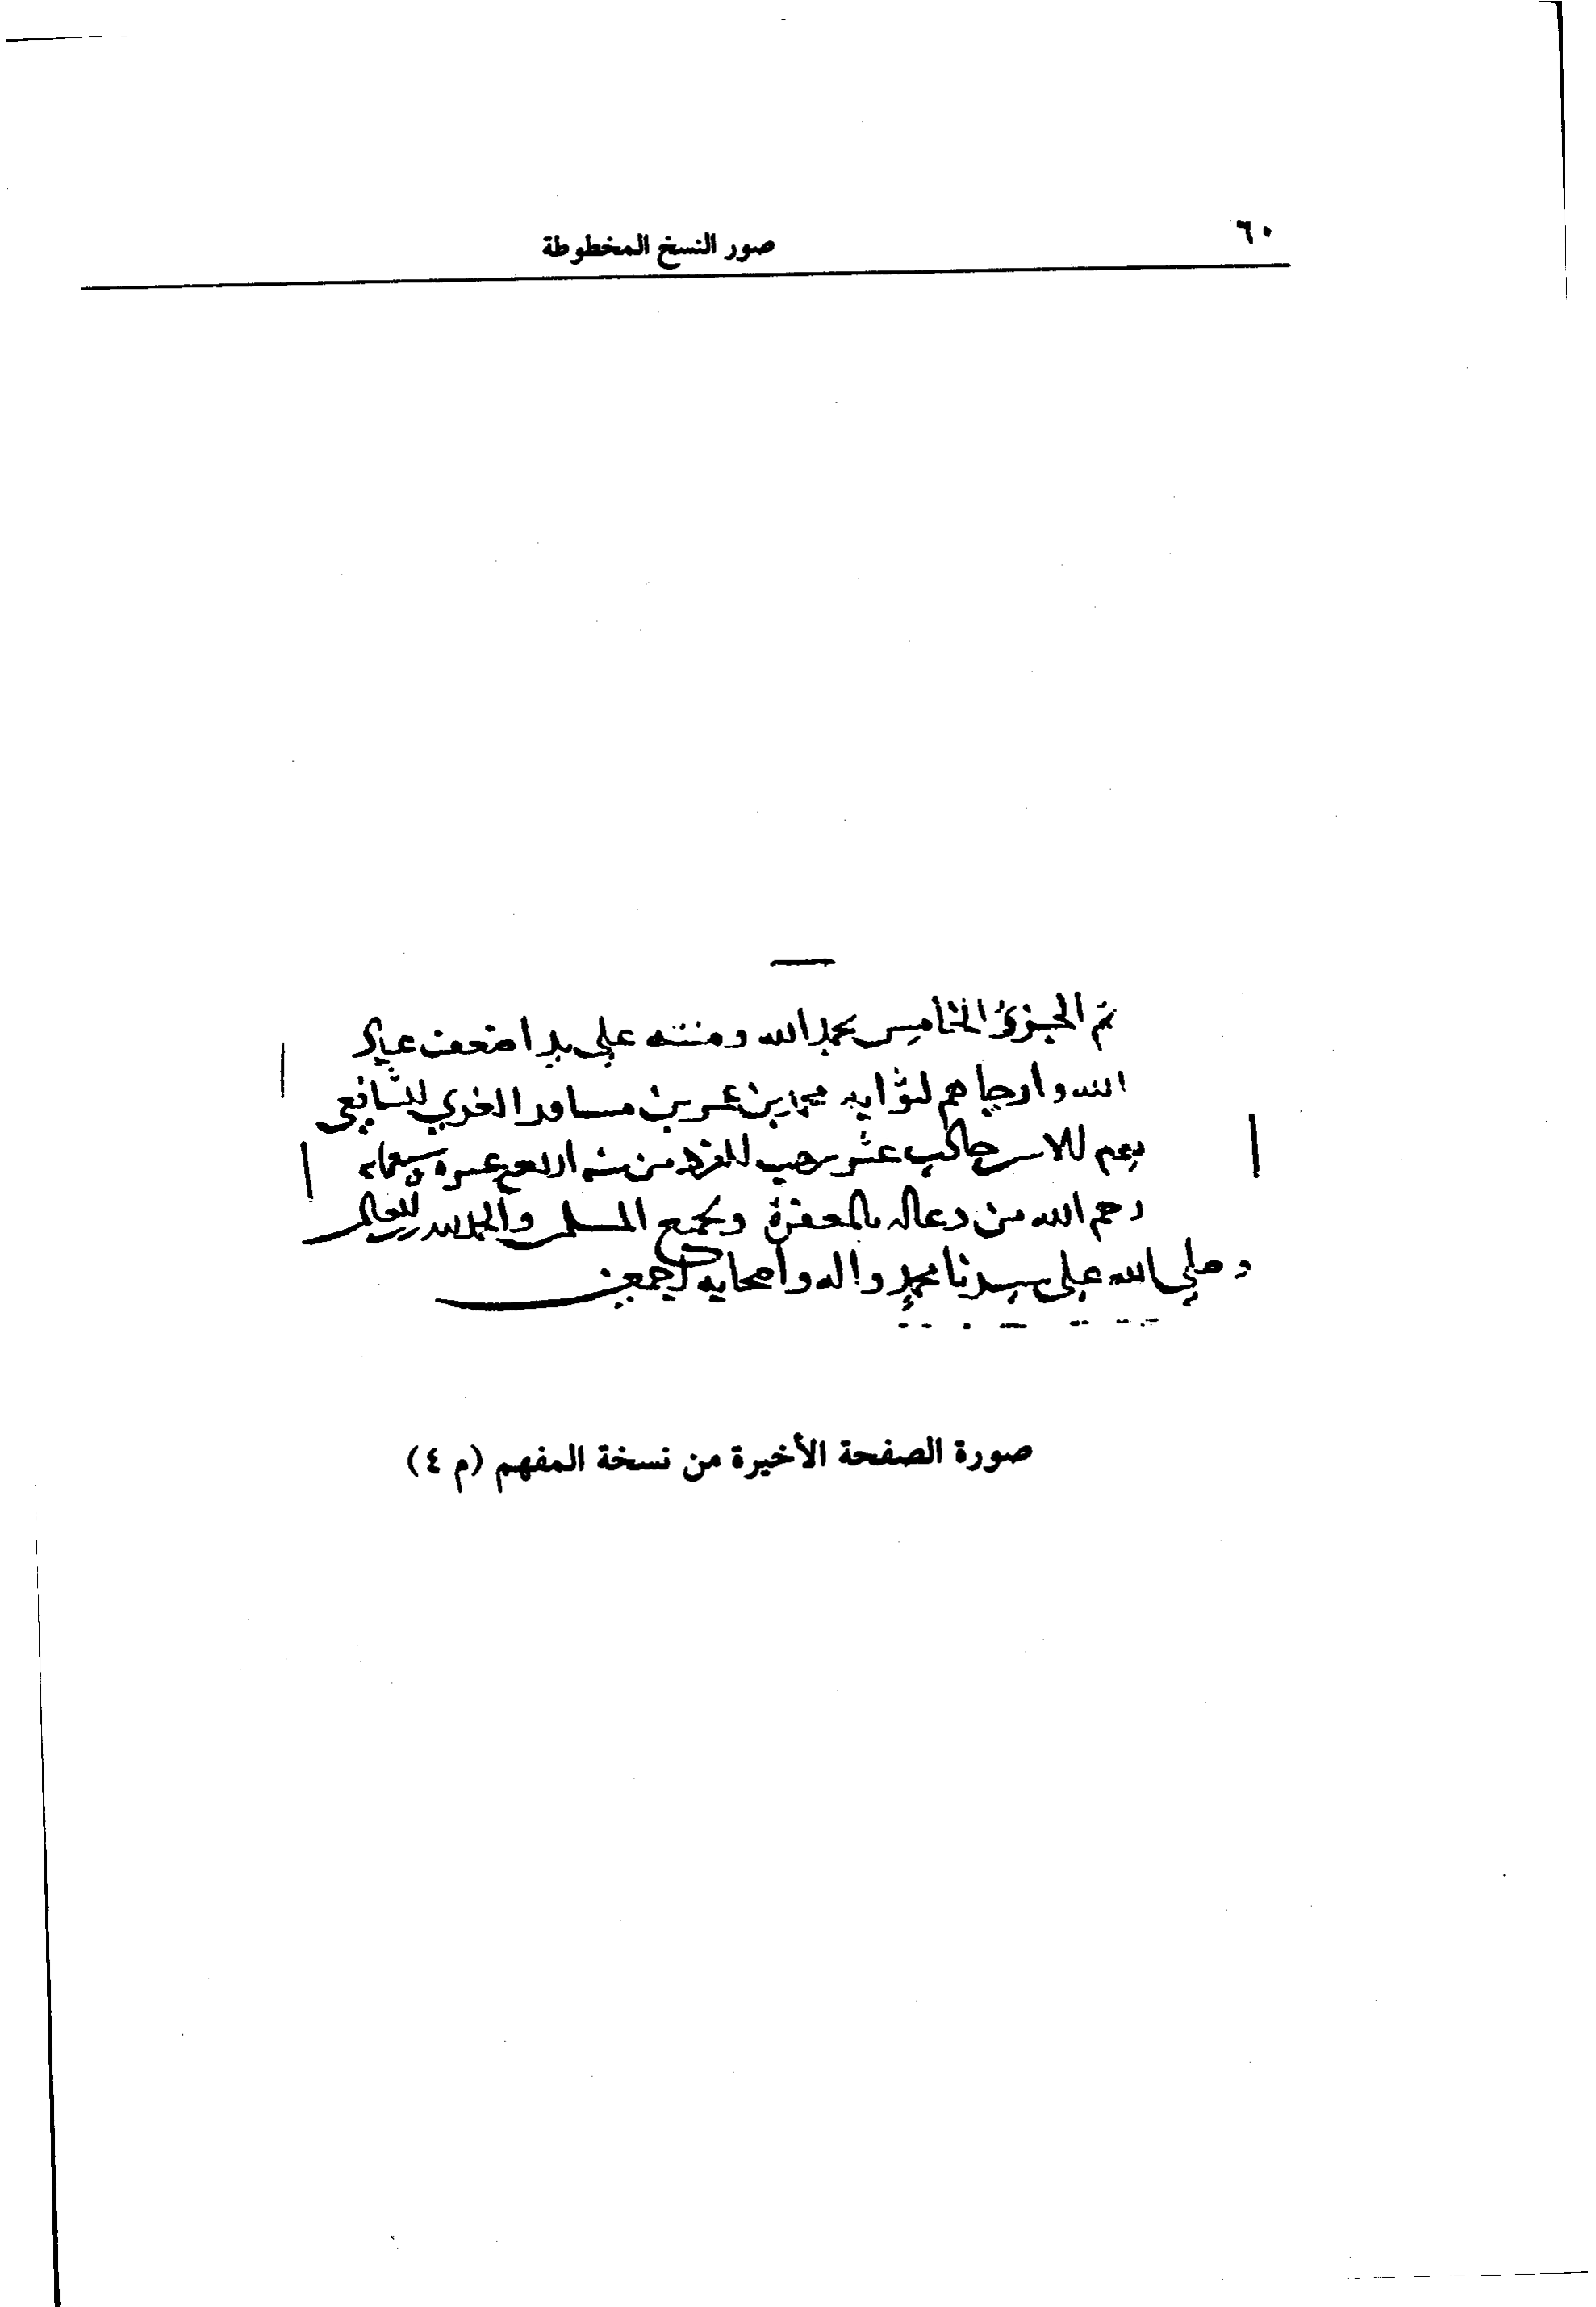 ٦٠
صور النسخ المخطوطة
تم الجزؤ الخامس بحمد الله ومنته على يد اضعف عباد
الله وارجاهم لثوابه محمد بن عمر بن مساور الغزي الشافعي
يوم الاسر عشر رجب الفرد من سنه اربع عشره وسبعمايه
رحم الله من دعا له بالمغفرة ولجميع المسلمين والحمد لله رب العالمين
وصلي الله على سيدنا محمد واله واصحابه اجمعين
صورة الصفحة الأخيرة من نسخة المفهم (م ٤)